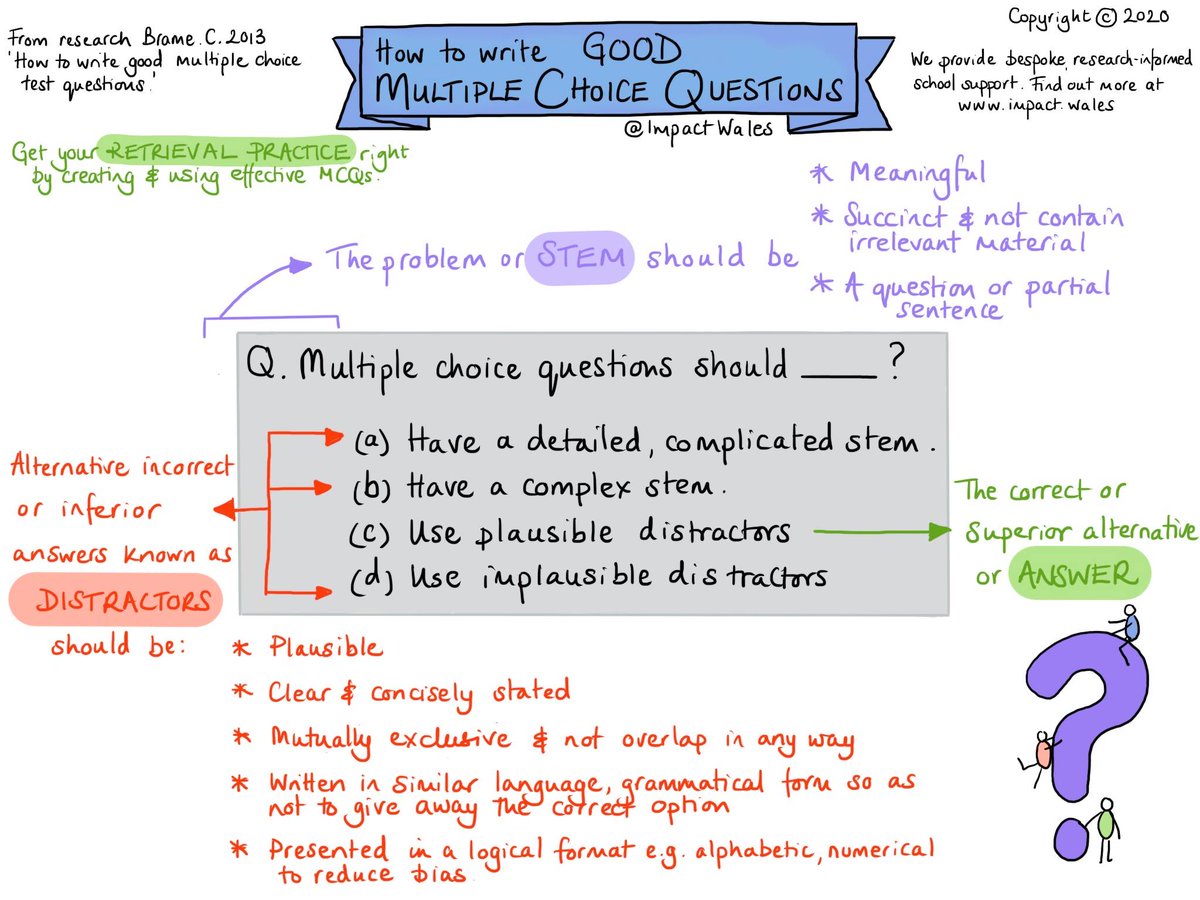 From research Brame. C. 2013
'How to write good multiple choice
test questions.'
How to write GOOD
MULTIPLE CHOICE QUESTIONS
@ImpactWales
Copyright © 2020
We provide bespoke, research-informed
school support. Find out more at
www.impact.wales
Get your RETRIEVAL PRACTICE right
by creating & using effective MCQs.
The problem or STEM should be
* Meaningful
* Succinct & not contain
irrelevant material
* A question or partial
sentence
Q. Multiple choice questions should ____ ?
(a) Have a detailed, complicated stem.
(b) Have a complex stem.
(c) Use plausible distractors
(d) Use implausible distractors
Alternative incorrect
or inferior
answers known as
DISTRACTORS
should be:
The correct or
superior alternative
or ANSWER
* Plausible
* Clear & concisely stated
* Mutually exclusive & not overlap in any way
* Written in similar language, grammatical form so as
not to give away the correct option
* Presented in a logical format e.g. alphabetic, numerical
to reduce bias